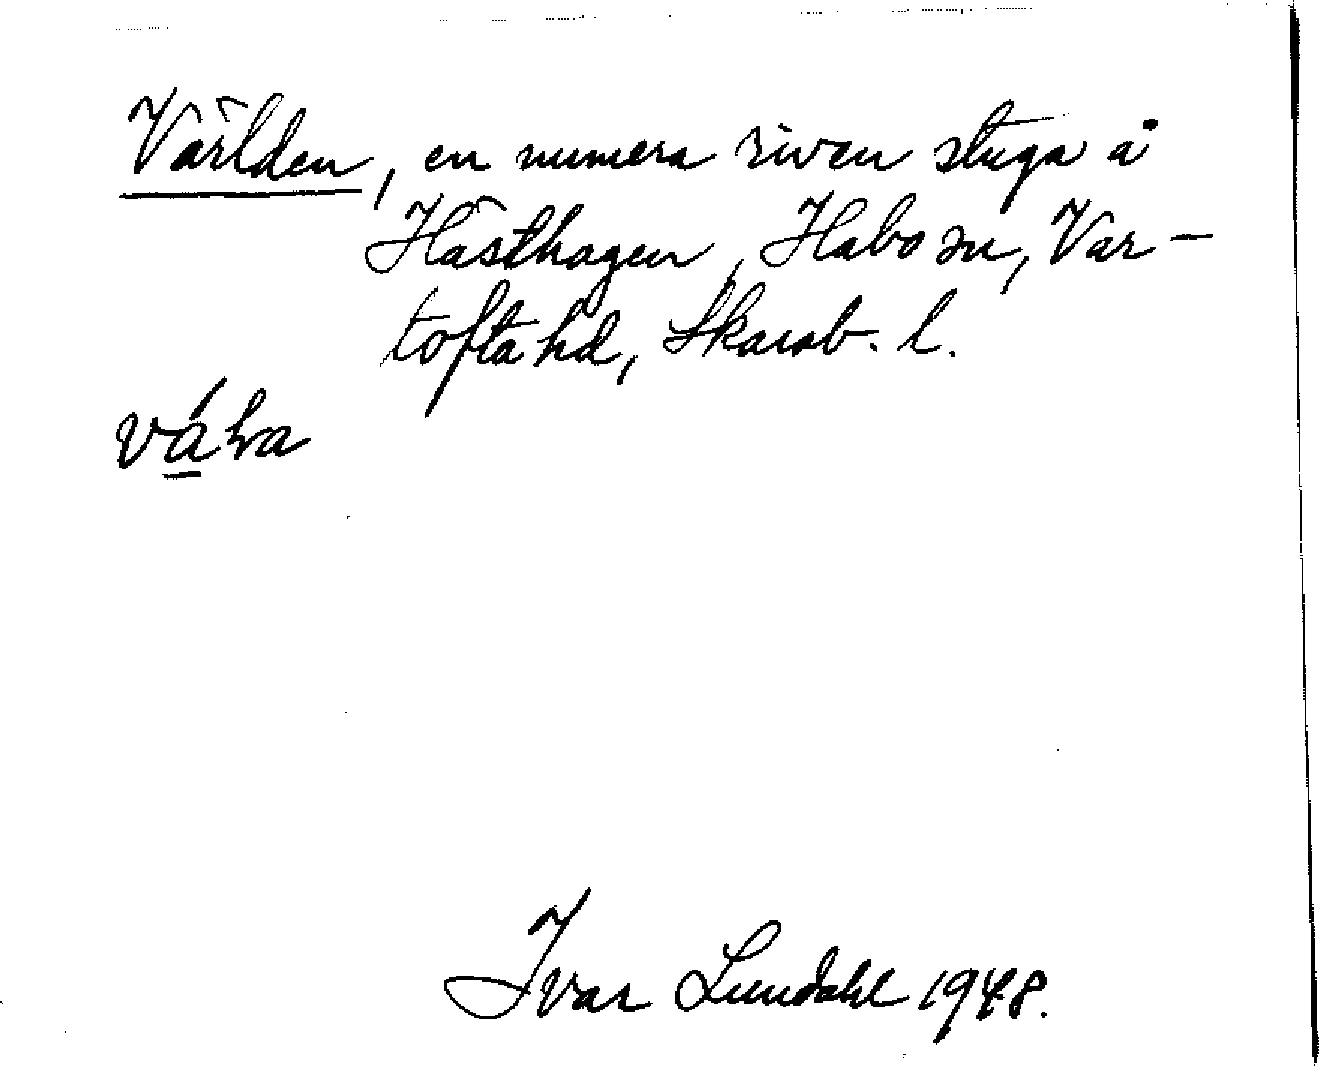 Världen, en numera riven stuga å
Hästhagen, Habo sn, Var-
tofta hd, Skarab. l.
Ivar Lundahl 1948.